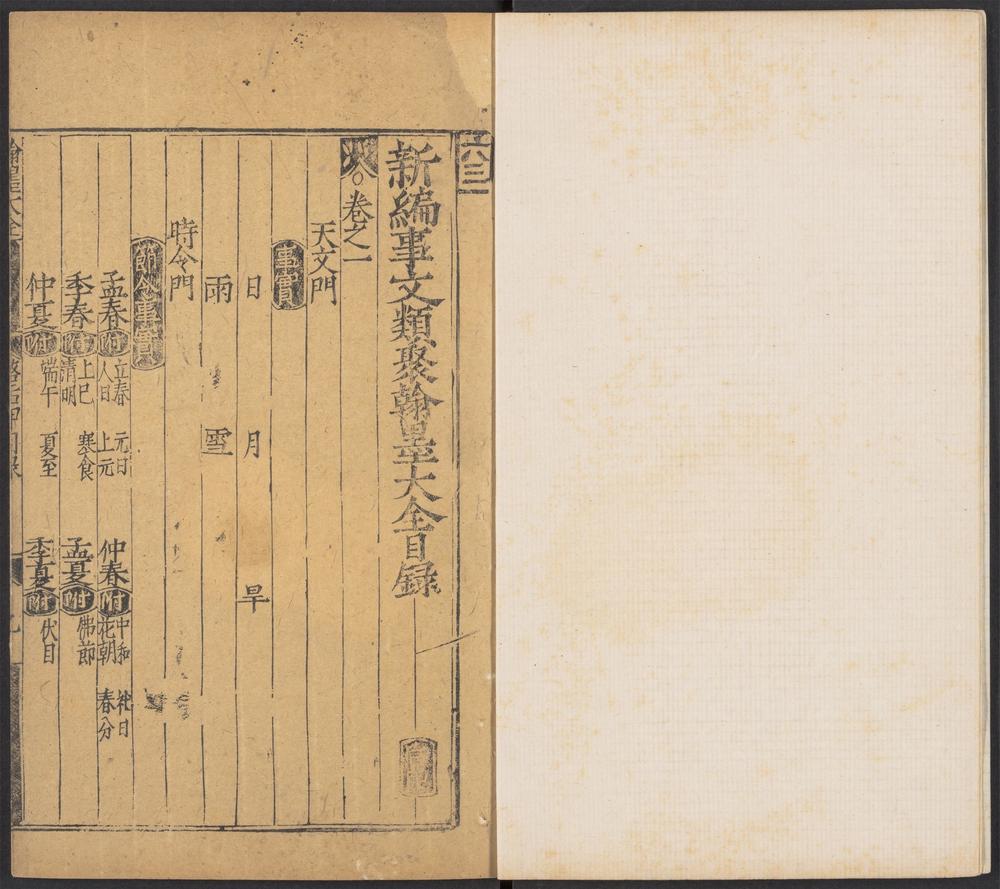 新編事文類聚翰墨大全目録
卷之一
天文門
事實
日 月 旱
雨 雪
時令門
節令事實
孟春 附 立春 人日 元日 上元 仲春 附 中和 花朝 社日 春分
季春 附 上巳 清明 寒食 孟夏 附 佛節
仲夏 附 端午 夏至 季夏 附 伏日